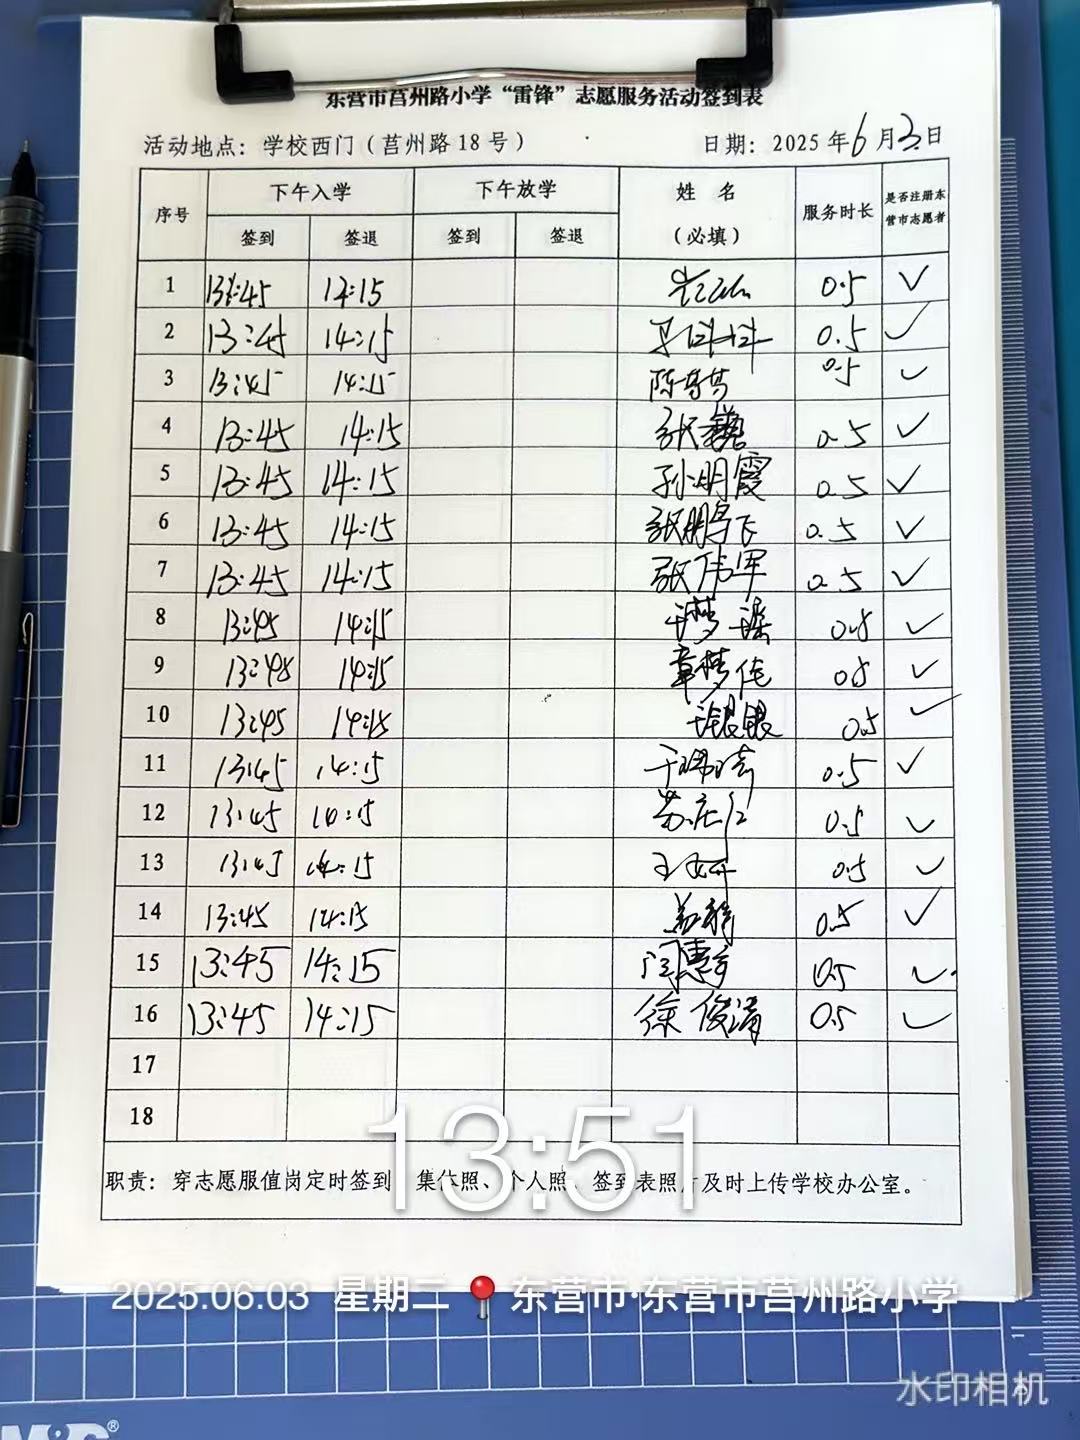 东营市莒州路小学“雷锋”志愿服务活动签到表
活动地点：学校西门（莒州路18号）  日期：2025年6月3日
序号 下午入学 下午放学 姓 名 （必填） 服务时长 是否注册东营市志愿者
签到 签退 签到 签退
1 13:45 14:15 0.5 ✓
2 13:45 14:15 0.5 ✓
3 13:45 14:15 陈 0.5 ✓
4 13:45 14:15 张巍 0.5 ✓
5 13:45 14:15 孙明霞 0.5 ✓
6 13:45 14:15 张鹏飞 0.5 ✓
7 13:45 14:15 张伟军 0.5 ✓
8 13:45 14:15 梦 0.5 ✓
9 13:45 14:15 章梦佳 0.5 ✓
10 13:45 14:15 银银 0.5 ✓
11 13:45 14:15 于 0.5 ✓
12 13:45 14:15 苏 0.5 ✓
13 13:45 14:15 王妍 0.5 ✓
14 13:45 14:15 0.5 ✓
15 13:45 14:15 闫惠 0.5 ✓
16 13:45 14:15 徐俊清 0.5 ✓
17
18
职责：穿志愿服值岗定时签到、集体照、个人照、签到表照片及时上传学校办公室。
13:51
2025.06.03 星期二 东营市·东营市莒州路小学
水印相机
M&G®